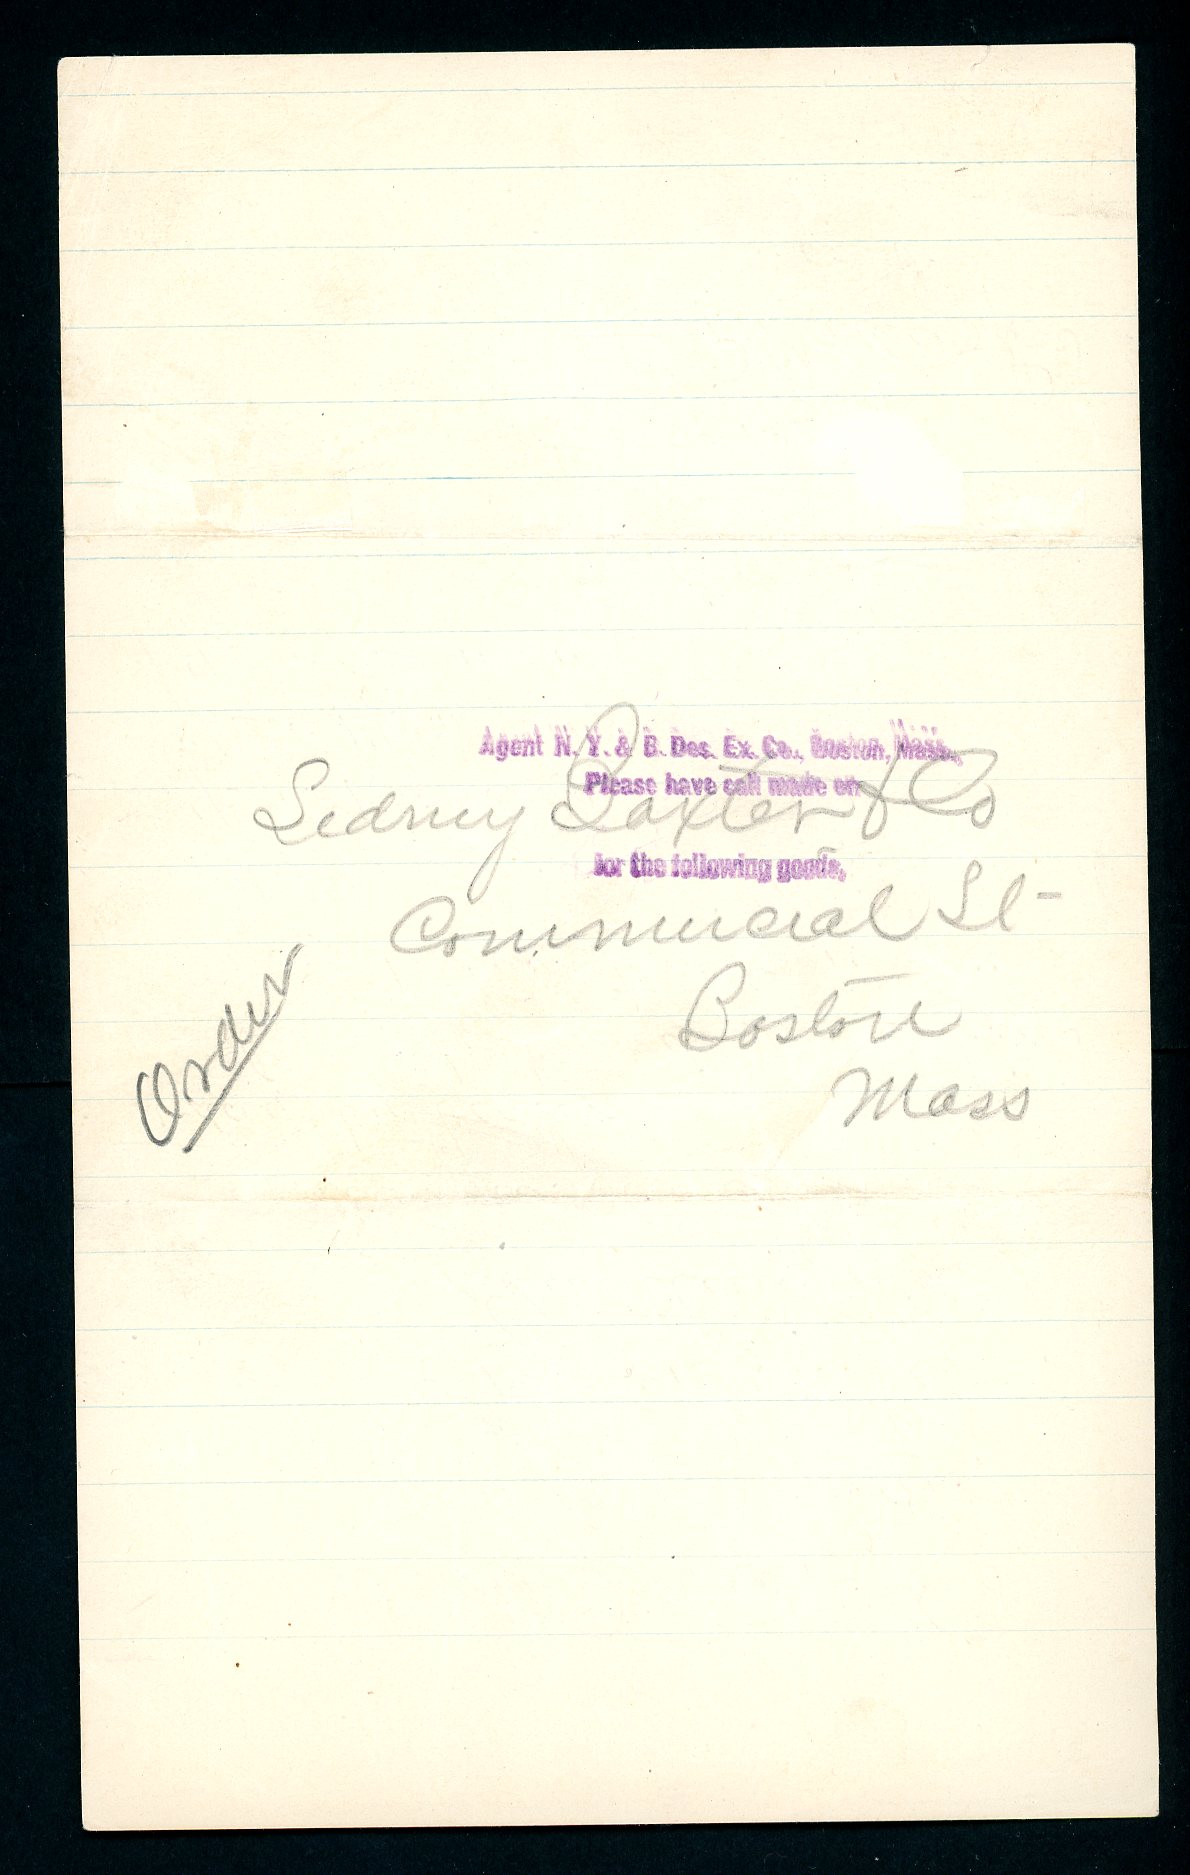 Agent N. Y. & B. Des. Ex. Co., Boston, Mass.,
Please have call made on
Sidney Baxter & Co
for the following goods,
Commercial St-
Boston
Mass
Order